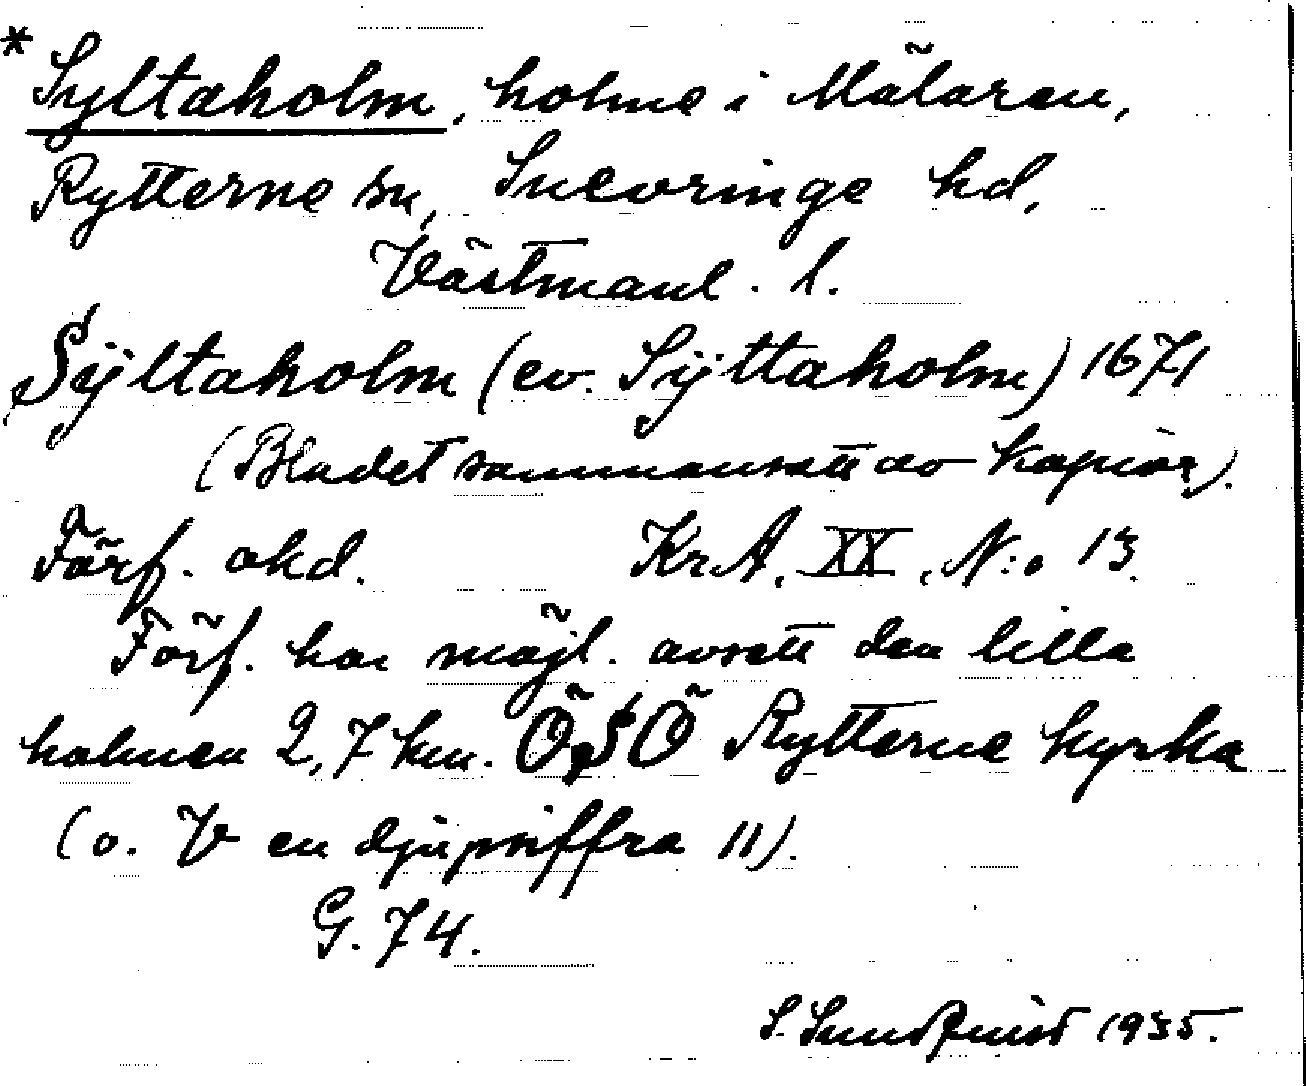 * Syltaholm, holme i Mälaren,
Rytterne sn, Snevringe hd,
Västmanl. l.
Sÿltaholm (ev. Sÿttaholm) 1671
(Bladet sammansatt av kopior).
Förf. okd. KrA, XX, N:o 13.
Förf. har möjl. avsett den lilla
holmen 2,7 km. ÖSÖ Rytterne kyrka
(o. V en djupsiffra 11).
G. 74.
S. Sundquist 1935.